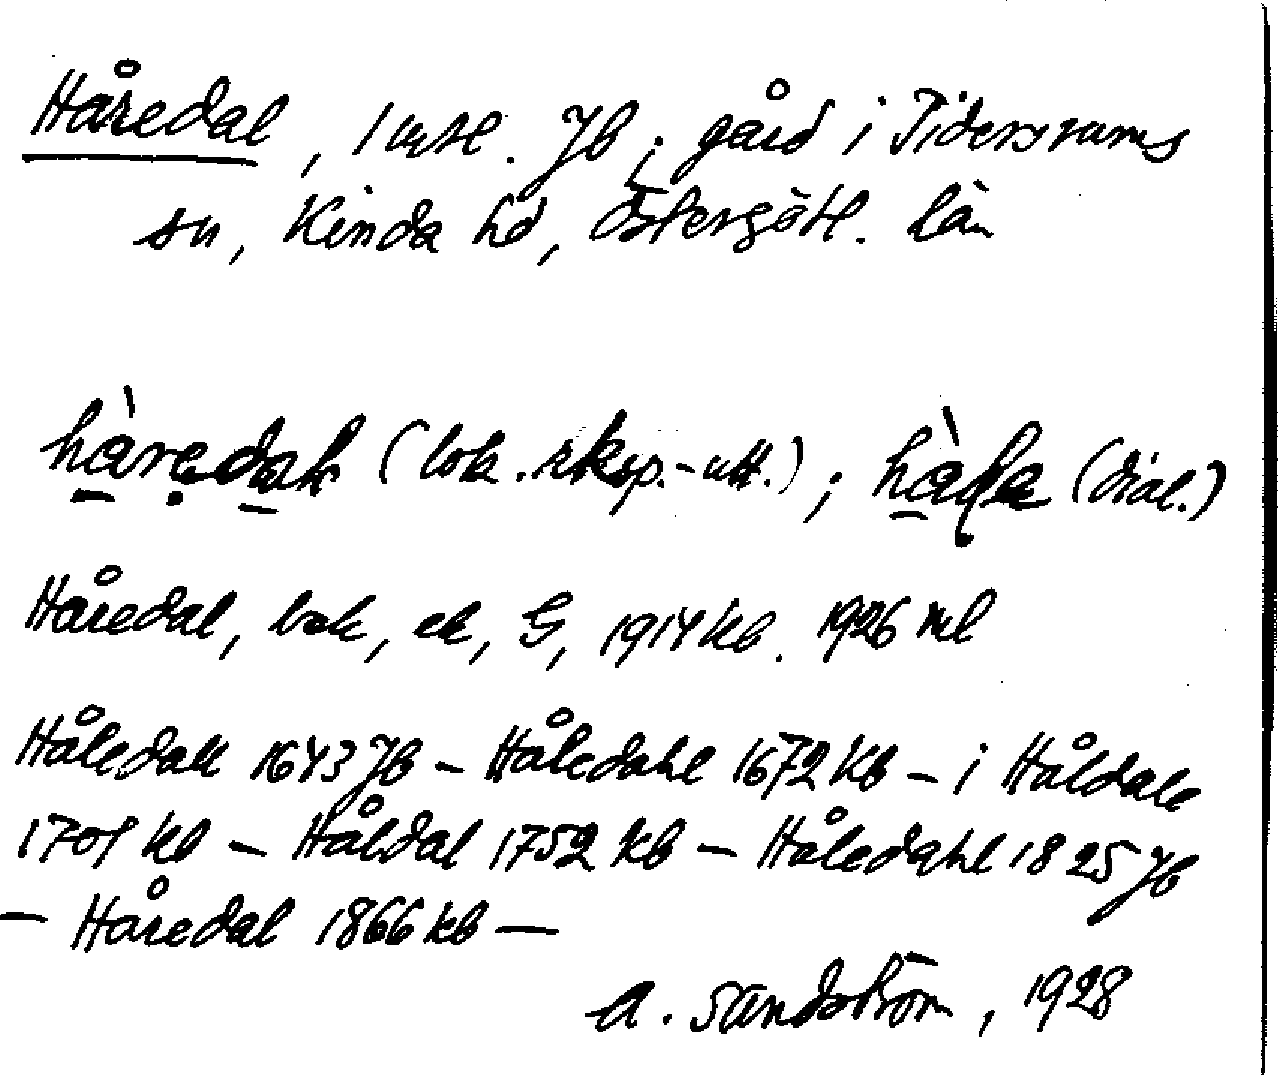 Håredal, 1 mtl. Jb; gård i Tidersrums
sn, Kinda hd, Östergötl. län
hàredal (lok. rksp.-utt.); (dial.)
Håredal, bok, ek, G, 1914 kb. 1926 ml
Håledall 1643 Jb – Håledahl 1672 Kb – i Håldall
1701 kb – Håldal 1752 kb – Håledahl 1825 Jb
– Håredal 1866 kb –
A. Sandström, 1928